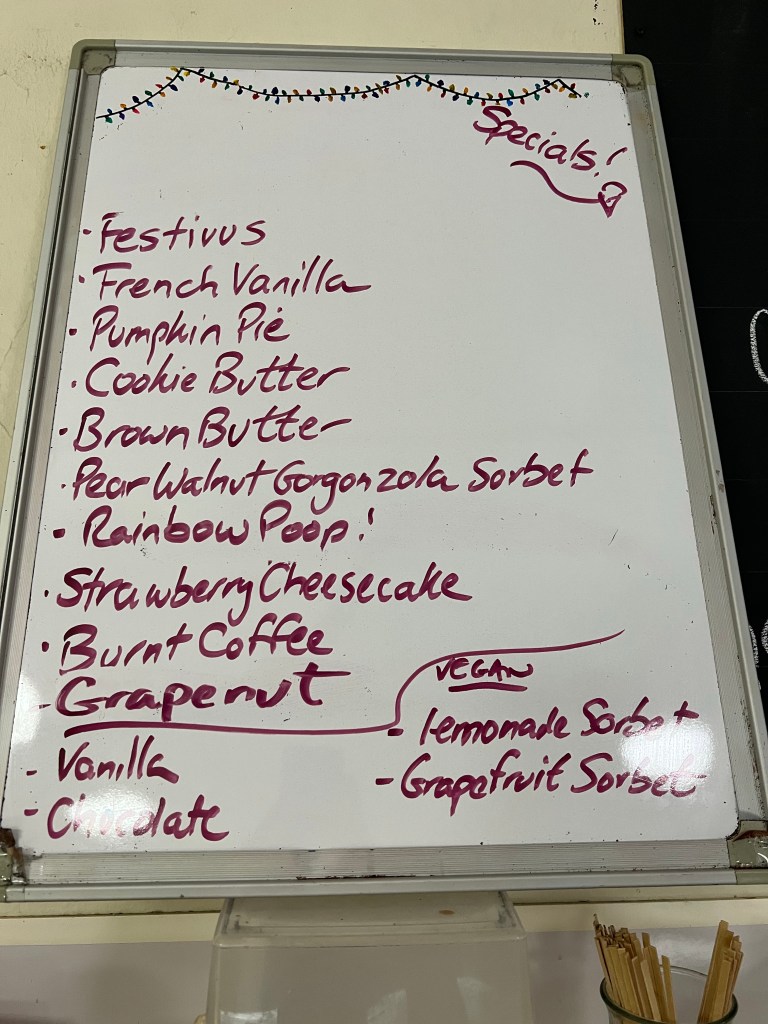 Specials!
- Festivus
- French Vanilla
- Pumpkin Pie
- Cookie Butter
- Brown Butter
- Pear Walnut Gorgonzola Sorbet
- Rainbow Poop!
- Strawberry Cheesecake
- Burnt Coffee
- Grapenut
- Vanilla
- Chocolate
VEGAN
- Lemonade Sorbet
- Grapefruit Sorbet